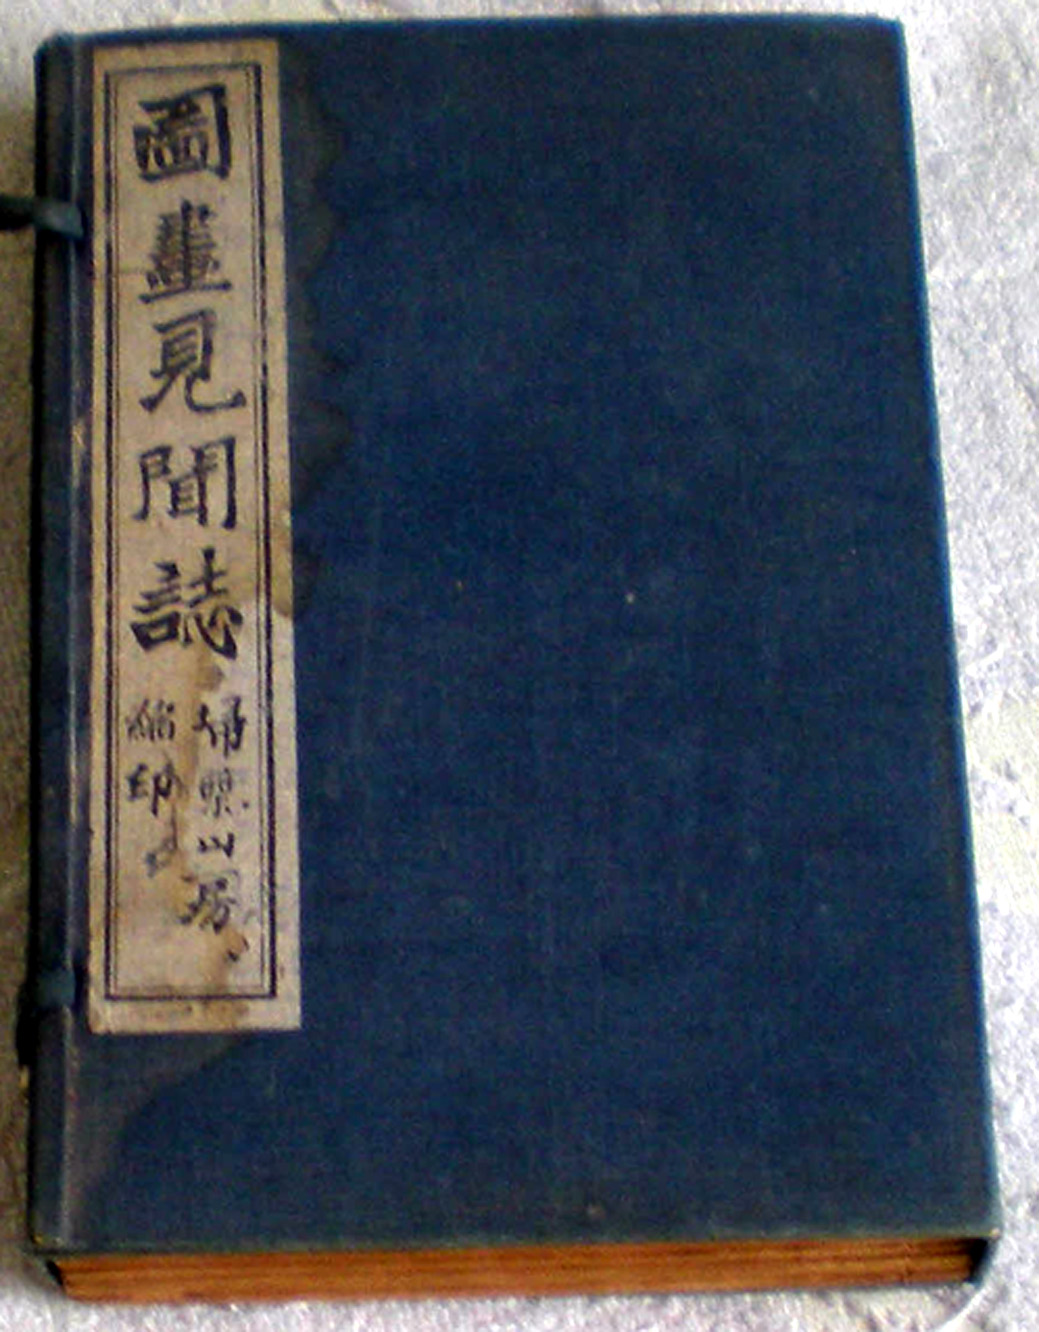 圖畫見聞誌
掃葉山房
縮印